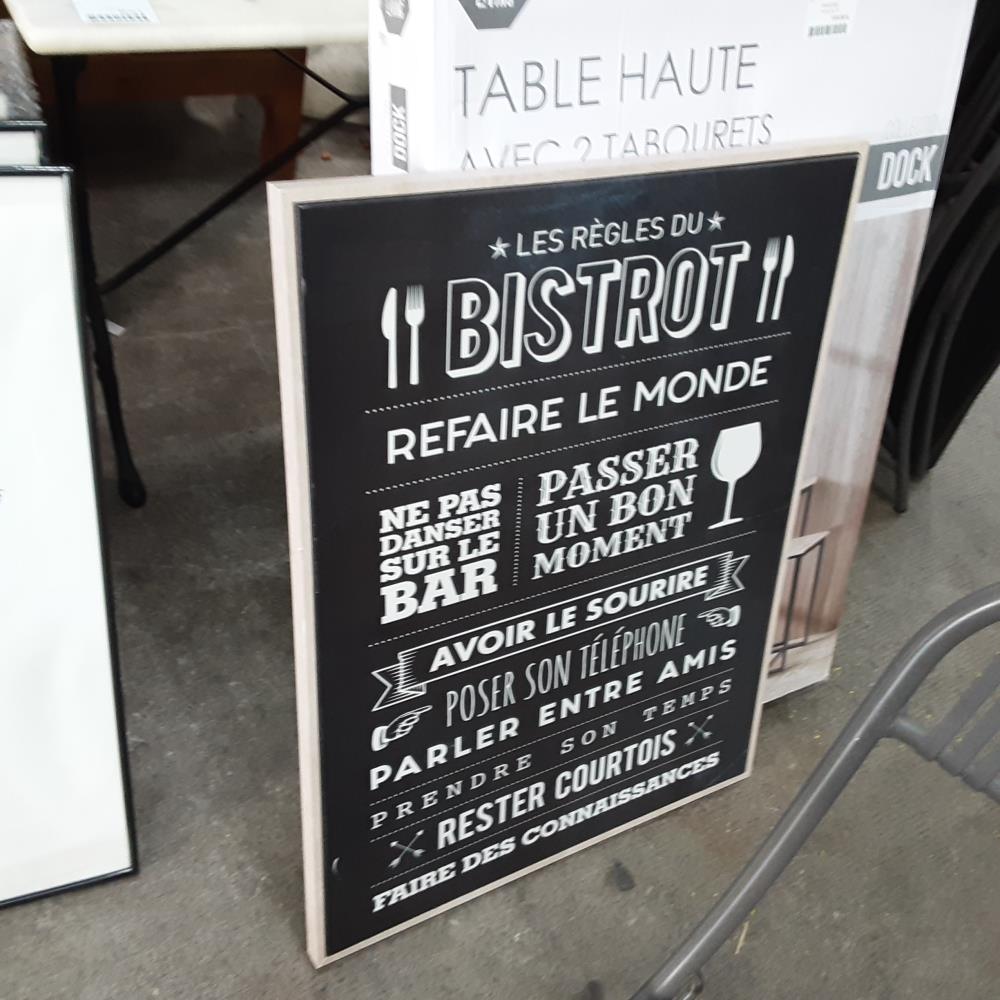 TABLE HAUTE
AVEC 2 TABOURETS
DOCK
DOCK
LES RÈGLES DU
BISTROT
REFAIRE LE MONDE
NE PAS
DANSER
SUR LE
BAR
PASSER
UN BON
MOMENT
AVOIR LE SOURIRE
POSER SON TÉLÉPHONE
PARLER ENTRE AMIS
PRENDRE SON TEMPS
RESTER COURTOIS
FAIRE DES CONNAISSANCES